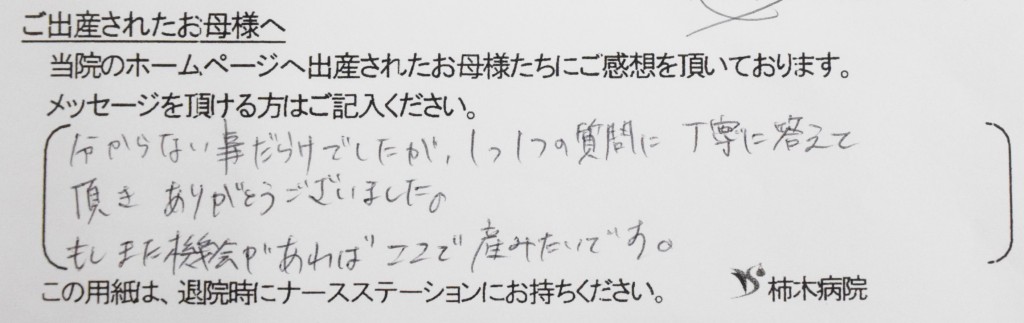 ご出産されたお母様へ
当院のホームページへ出産されたお母様たちにご感想を頂いております。
メッセージを頂ける方はご記入ください。
分からない事だらけでしたが、1つ1つの質問に丁寧に答えて
頂きありがとうございました。
もしまた機会があればココで産みたいです。
この用紙は、退院時にナースステーションにお持ちください。
柿木病院